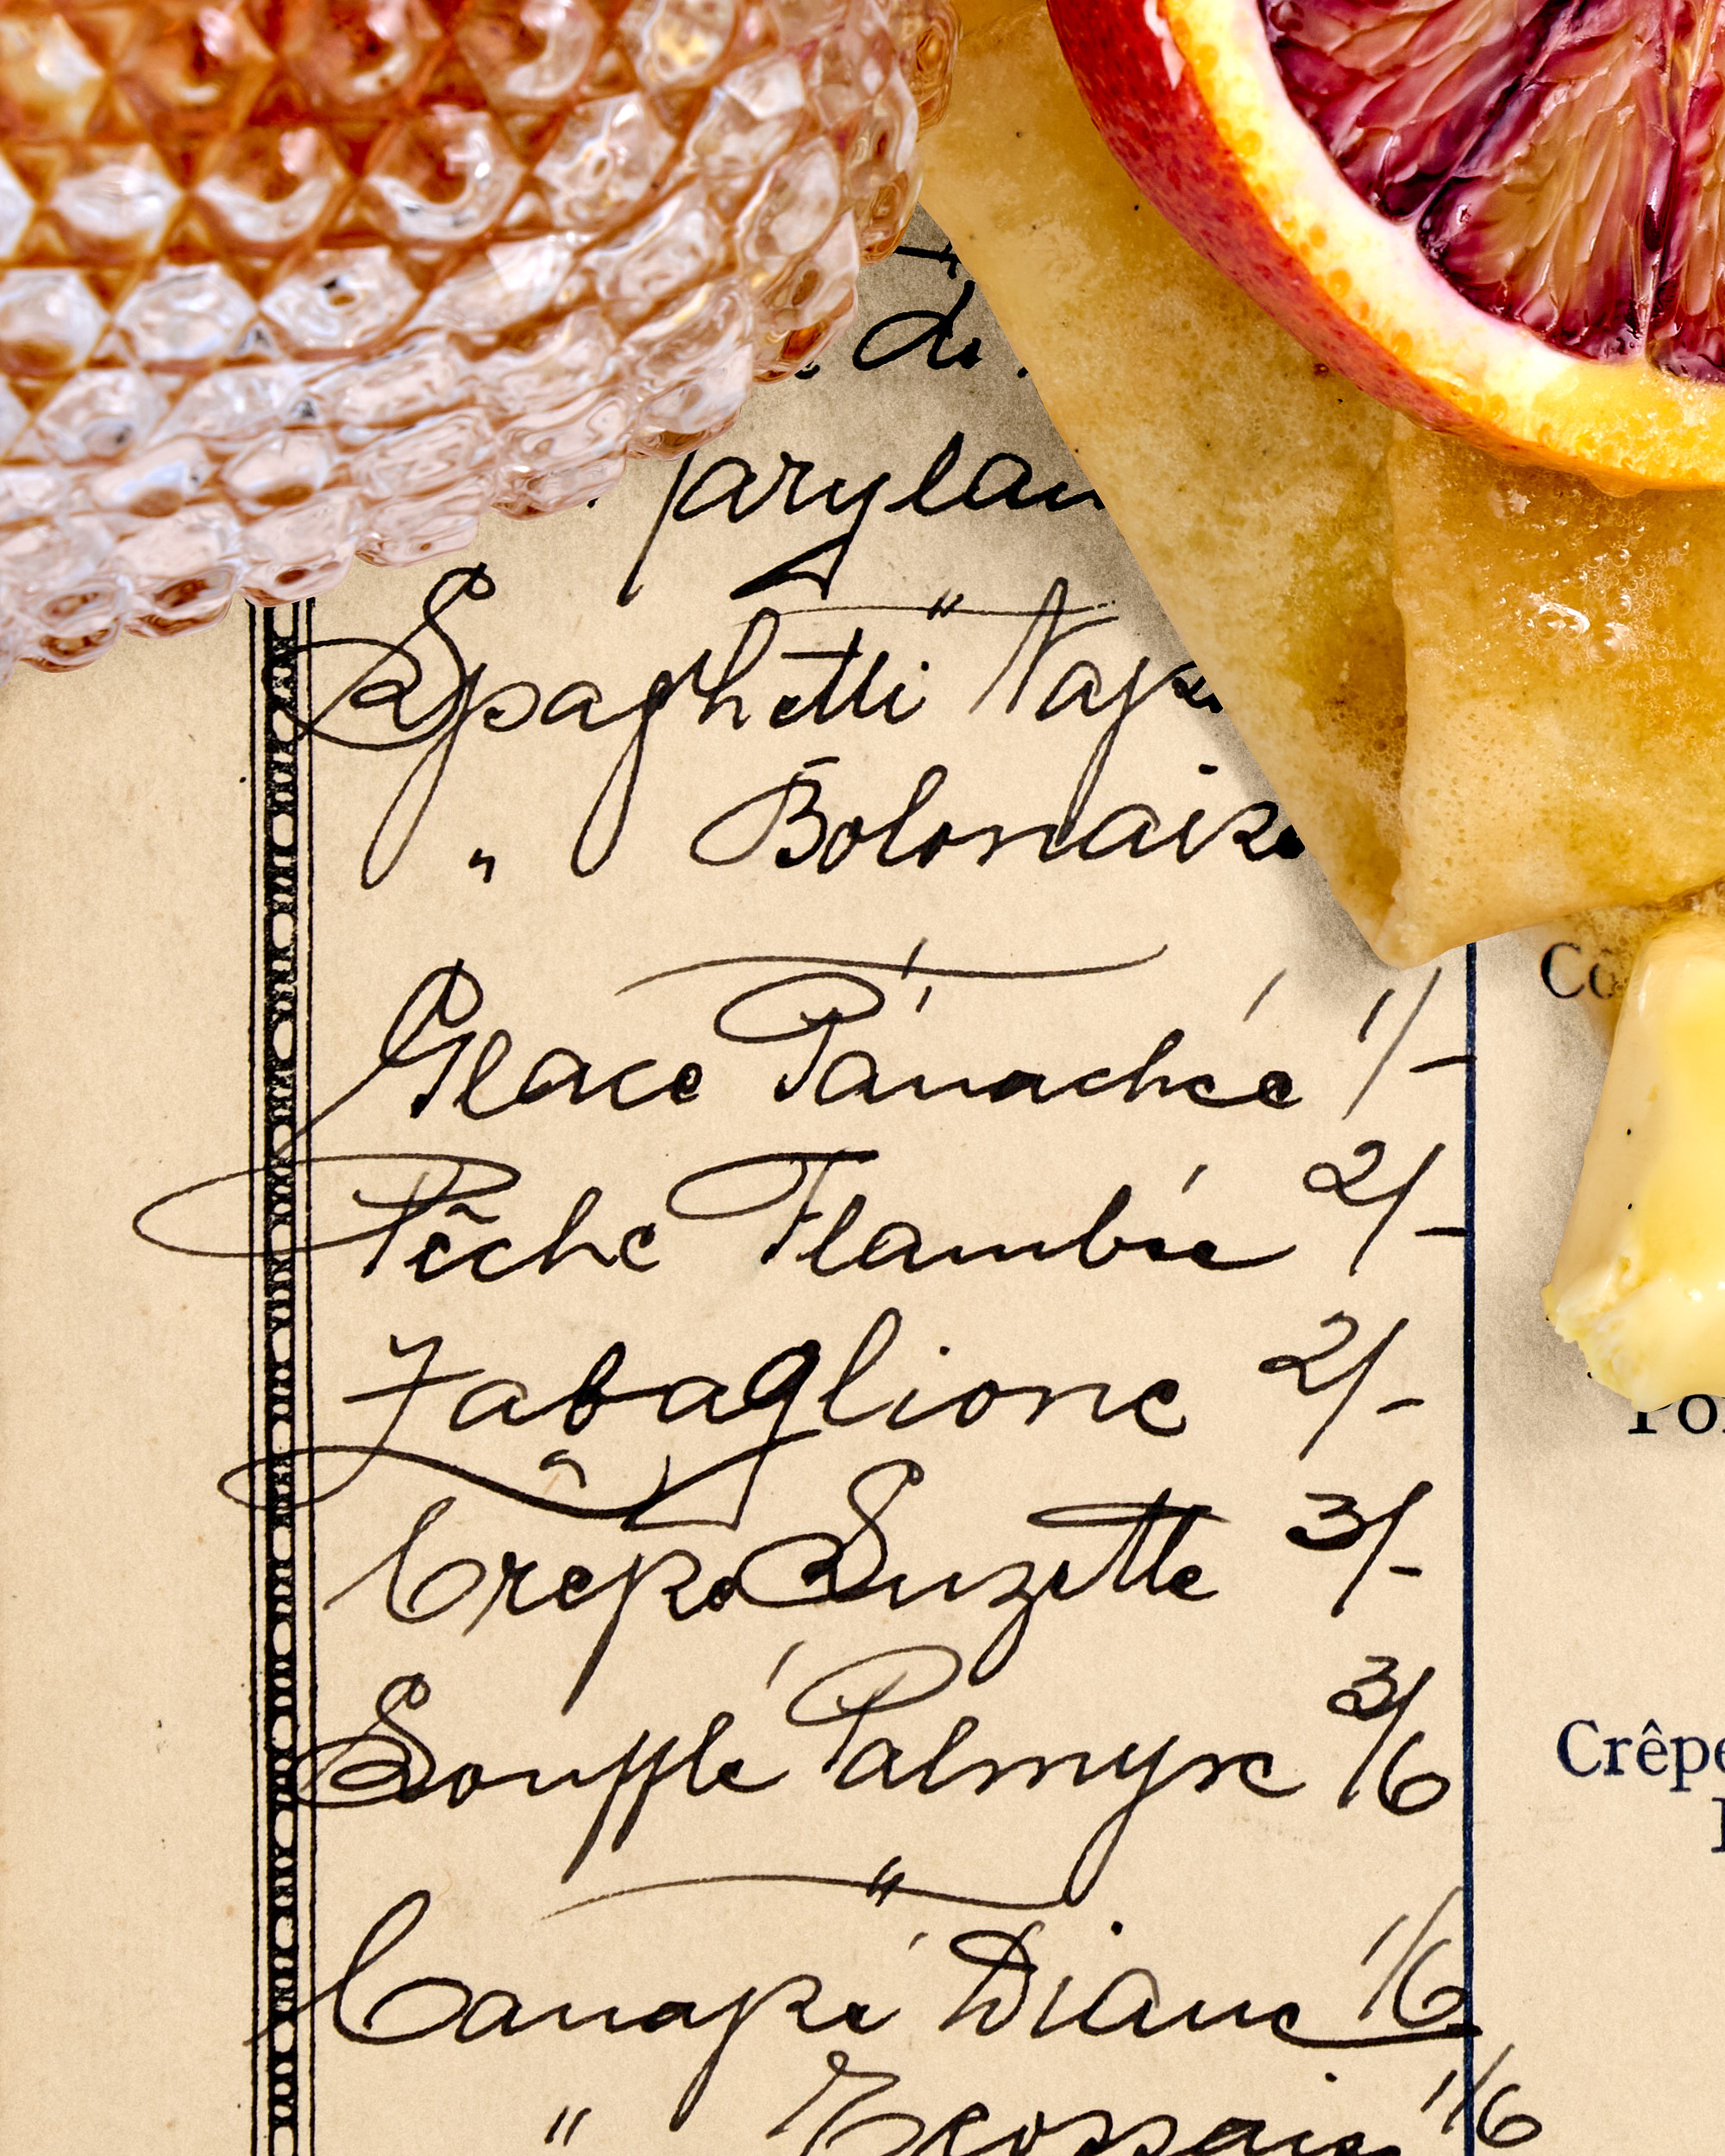 de
Spaghetti
" Bolonaise
Glace Panachée 1/-
Pêche Flambée 2/-
Zabaglione 2/-
Crepe Suzette 3/-
Soufflé Palmyre 3/6
Canapé Diane 1/6
" 1/6
Crêpe